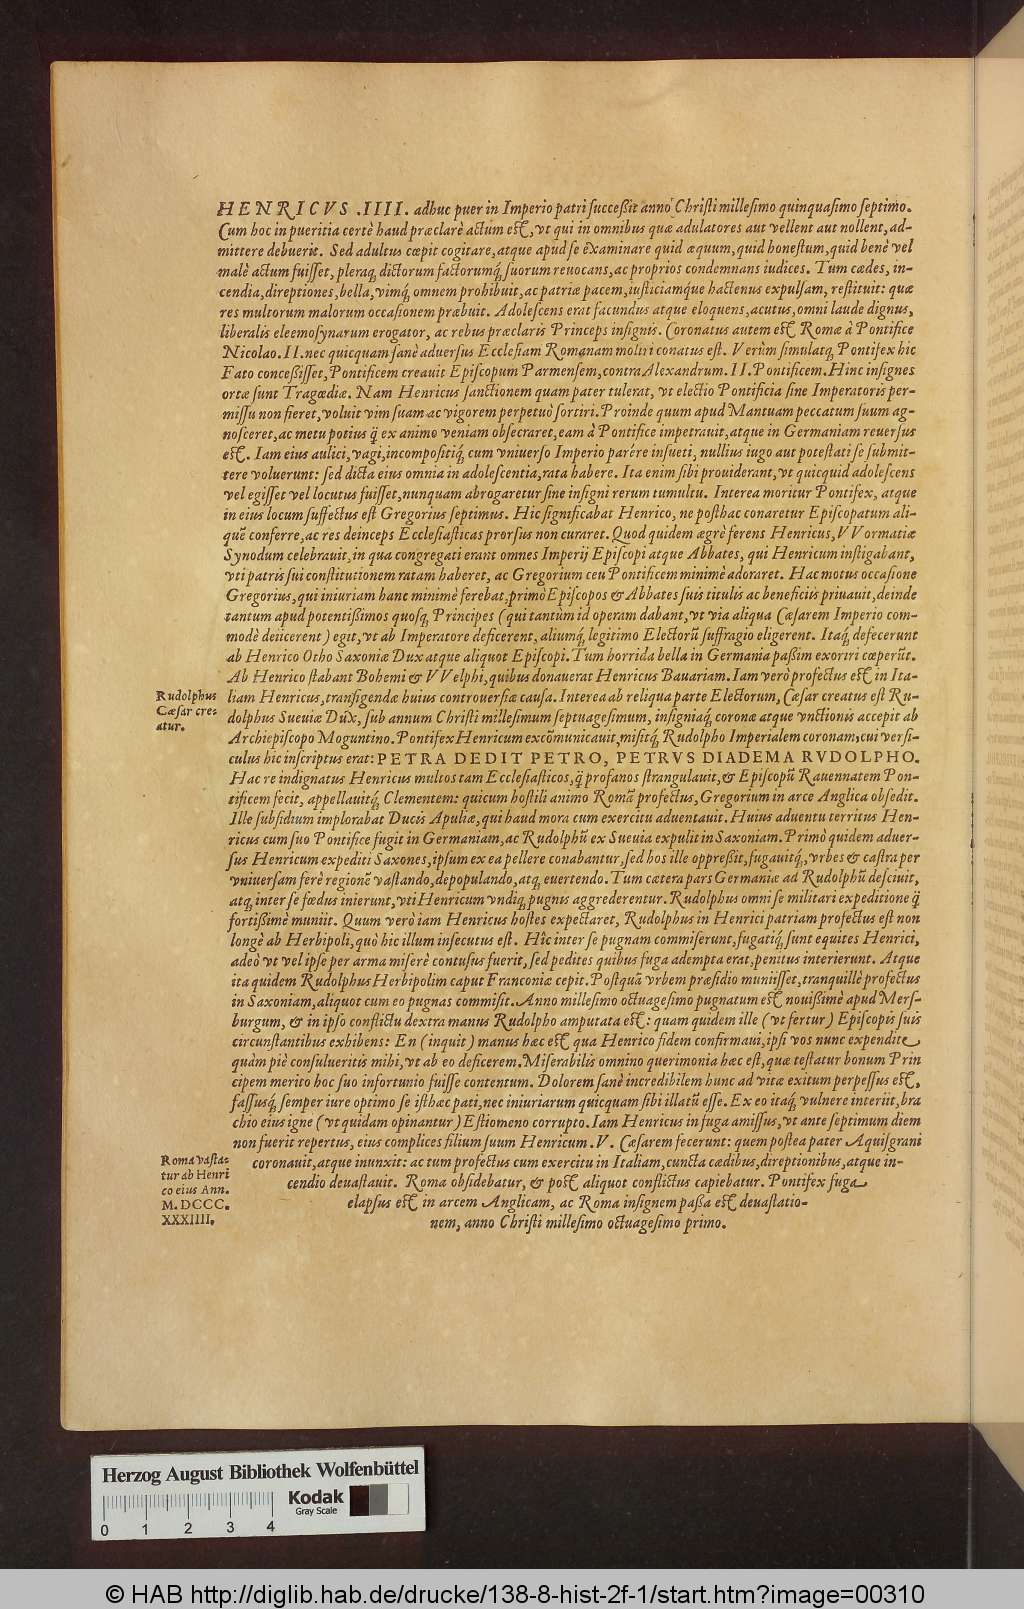 HENRICVS .IIII. adhuc puer in Imperio patri succeßit anno Christi millesimo quinquasimo septimo.
Cum hoc in pueritia certè haud præclarè actum est, vt qui in omnibus quæ adulatores aut vellent aut nollent, ad-
mittere debuerit. Sed adultus cœpit cogitare, atque apud se examinare quid æquum, quid honestum, quid benè vel
malè actum fuisset, pleraq́; dictorum factorumq́; suorum reuocans, ac proprios condemnans iudices. Tum cædes, in-
cendia, direptiones, bella, vimq́; omnem prohibuit, ac patriæ pacem, iusticiamque hactenus expulsam, restituit: quæ
res multorum malorum occasionem præbuit. Adolescens erat facundus atque eloquens, acutus, omni laude dignus,
liberalis eleemosynarum erogator, ac rebus præclaris Princeps insignis. Coronatus autem est Romæ à Pontifice
Nicolao. II. nec quicquam sanè aduersus Ecclesiam Romanam moliri conatus est. Verùm simulatq; Pontifex hic
Fato conceßisset, Pontificem creauit Episcopum Parmensem, contra Alexandrum. II. Pontificem. Hinc insignes
ortæ sunt Tragœdiæ. Nam Henricus sanctionem quam pater tulerat, vt electio Pontificia sine Imperatoris per-
missu non fieret, voluit vim suam ac vigorem perpetuò sortiri. Proinde quum apud Mantuam peccatum suum ag-
nosceret, ac metu potius q̃ ex animo veniam obsecraret, eam à Pontifice impetrauit, atque in Germaniam reuersus
est. Iam eius aulici, vagi, incompositiq́; cum vniuerso Imperio parère insueti, nullius iugo aut potestati se submit-
tere voluerunt: sed dicta eius omnia in adolescentia, rata habere. Ita enim sibi prouiderant, vt quicquid adolescens
vel egisset vel locutus fuisset, nunquam abrogaretur sine insigni rerum tumultu. Interea moritur Pontifex, atque
in eius locum suffectus est Gregorius septimus. Hic significabat Henrico, ne posthac conaretur Episcopatum ali-
quẽ conferre, ac res deinceps Ecclesiasticas prorsus non curaret. Quod quidem ægrè ferens Henricus, VVormatiæ
Synodum celebrauit, in qua congregati erant omnes Imperij Episcopi atque Abbates, qui Henricum instigabant,
vti patris sui constitutionem ratam haberet, ac Gregorium ceu Pontificem minimè adoraret. Hac motus occasione
Gregorius, qui iniuriam hanc minimè ferebat, primò Episcopos & Abbates suis titulis ac beneficiis priuauit, deinde
tantum apud potentißimos quosq; Principes (qui tantùm id operam dabant, vt via aliqua Cæsarem Imperio com-
modè deiicerent) egit, vt ab Imperatore deficerent, aliumq́; legitimo Electorũ suffragio eligerent. Itaq́; defecerunt
ab Henrico Otho Saxoniæ Dux atque aliquot Episcopi. Tum horrida bella in Germania paßim exoriri cœperũt.
Ab Henrico stabant Bohemi & VVelphi, quibus donauerat Henricus Bauariam. Iam verò profectus est in Ita-
Rudolphus
Cæsar cre-
atur.
liam Henricus, transigendæ huius controuersiæ causa. Interea ab reliqua parte Electorum, Cæsar creatus est Ru-
dolphus Sueuiæ Dux, sub annum Christi millesimum septuagesimum, insigniaq́; coronæ atque vnctionis accepit ab
Archiepiscopo Moguntino. Pontifex Henricum excõmunicauit, misitq́; Rudolpho Imperialem coronam, cui versi-
culus hic inscriptus erat: PETRA DEDIT PETRO, PETRVS DIADEMA RVDOLPHO.
Hac re indignatus Henricus multos tam Ecclesiasticos, q̃ profanos strangulauit, & Episcopũ Rauennatem Pon-
tificem fecit, appellauitq́; Clementem: quicum hostili animo Romã profectus, Gregorium in arce Anglica obsedit.
Ille subsidium implorabat Ducis Apuliæ, qui haud mora cum exercitu aduentauit. Huius aduentu territus Hen-
ricus cum suo Pontifice fugit in Germaniam, ac Rudolphũ ex Sueuia expulit in Saxoniam. Primò quidem aduer-
sus Henricum expediti Saxones, ipsum ex ea pellere conabantur, sed hos ille oppreßit, fugauitq́; vrbes & castra per
vniuersam ferè regionẽ vastando, depopulando, atq; euertendo. Tum cætera pars Germaniæ ad Rudolphũ desciuit,
atq; inter se fœdus inierunt, vti Henricum vndiq; pugnis aggrederentur. Rudolphus omni se militari expeditione q̃
fortißimè muniit. Quum verò iam Henricus hostes expectaret, Rudolphus in Henrici patriam profectus est non
longè ab Herbipoli, quò hic illum insecutus est. Hîc inter se pugnam commiserunt, fugatiq́; sunt equites Henrici,
adeò vt vel ipse per arma miserè contusus fuerit, sed pedites quibus fuga adempta erat, penitus interierunt. Atque
ita quidem Rudolphus Herbipolim caput Franconiæ cepit. Postquã vrbem præsidio muniisset, tranquillè profectus
in Saxoniam, aliquot cum eo pugnas commisit. Anno millesimo octuagesimo pugnatum est nouißimè apud Mers-
burgum, & in ipso conflictu dextra manus Rudolpho amputata est: quam quidem ille (vt fertur) Episcopis suis
circunstantibus exhibens: En (inquit) manus hæc est qua Henrico fidem confirmaui, ipsi vos nunc expendite
quàm piè consulueritis mihi, vt ab eo deficerem. Miserabilis omnino querimonia hæc est, quæ testatur bonum Prin
cipem merito hoc suo infortunio fuisse contentum. Dolorem sanè incredibilem hunc ad vitæ exitum perpessus est,
fassusq́; semper iure optimo se isthæc pati, nec iniuriarum quicquam sibi illatũ esse. Ex eo itaq́; vulnere interiit, bra
chio eius igne (vt quidam opinantur) Estiomeno corrupto. Iam Henricus in fuga amissus, vt ante septimum diem
non fuerit repertus, eius complices filium suum Henricum. V. Cæsarem fecerunt: quem postea pater Aquisgrani
Roma vasta-
tur ab Henri
co eius Ann.
M. DCCC.
XXXIIII.
coronauit, atque inunxit: ac tum profectus cum exercitu in Italiam, cuncta cædibus, direptionibus, atque in-
cendio deuastauit. Roma obsidebatur, & post aliquot conflictus capiebatur. Pontifex fuga
elapsus est in arcem Anglicam, ac Roma insignem passa est deuastatio-
nem, anno Christi millesimo octuagesimo primo.
Herzog August Bibliothek Wolfenbüttel
Kodak
Gray Scale
0 1 2 3 4
© HAB http://diglib.hab.de/drucke/138-8-hist-2f-1/start.htm?image=00310